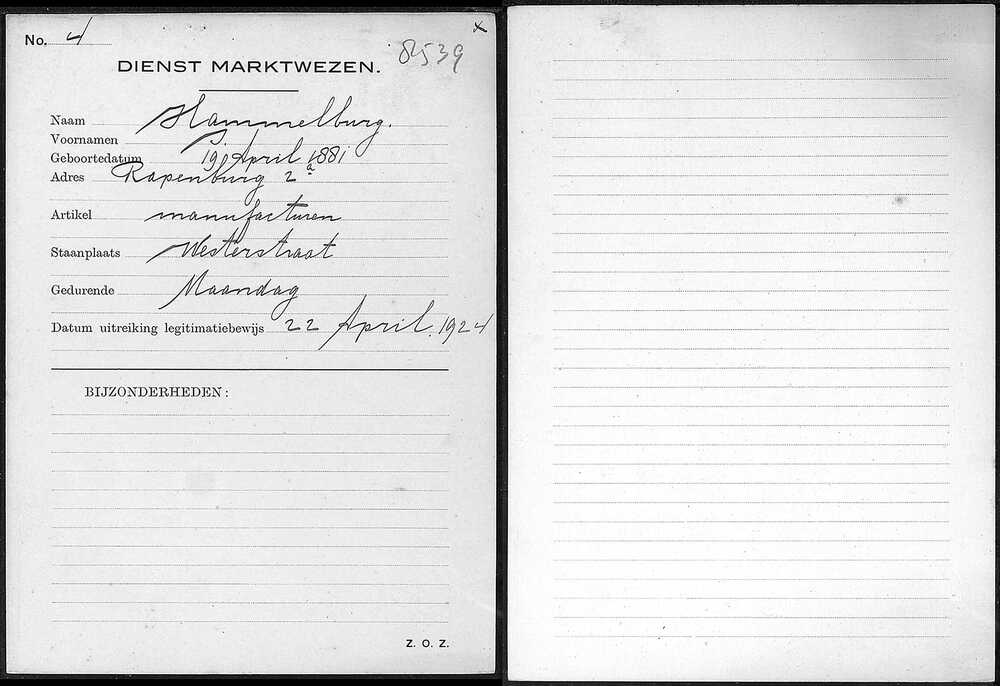 No. 4
x
8539
DIENST MARKTWEZEN.
Naam Hammelburg.
Voornamen S.
Geboortedatum 19 April 1881
Adres Rapenburg 2a
Artikel manufacturen
Staanplaats Westerstraat
Gedurende Maandag
Datum uitreiking legitimatiebewijs 22 April 1924
BIJZONDERHEDEN:
Z. O. Z.